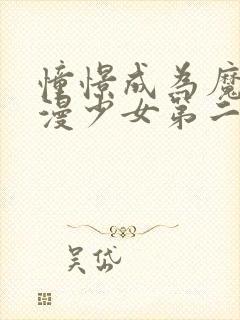 憧憬成为魔
漫少女第二
吴岱